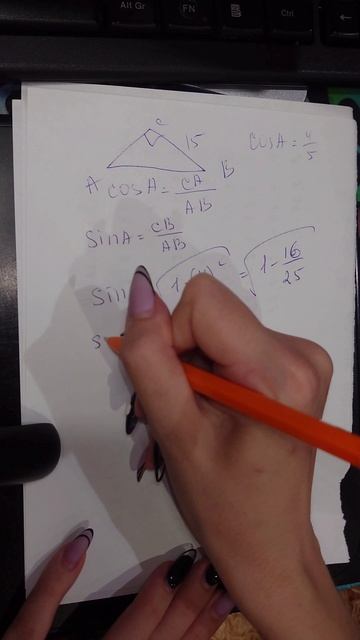 Alt Gr FN Ctrl
C
15 cosA = 4/5
A B
cosA = CA/AB
sinA = CB/AB
sin √1-(4)² = √1-16/25
s